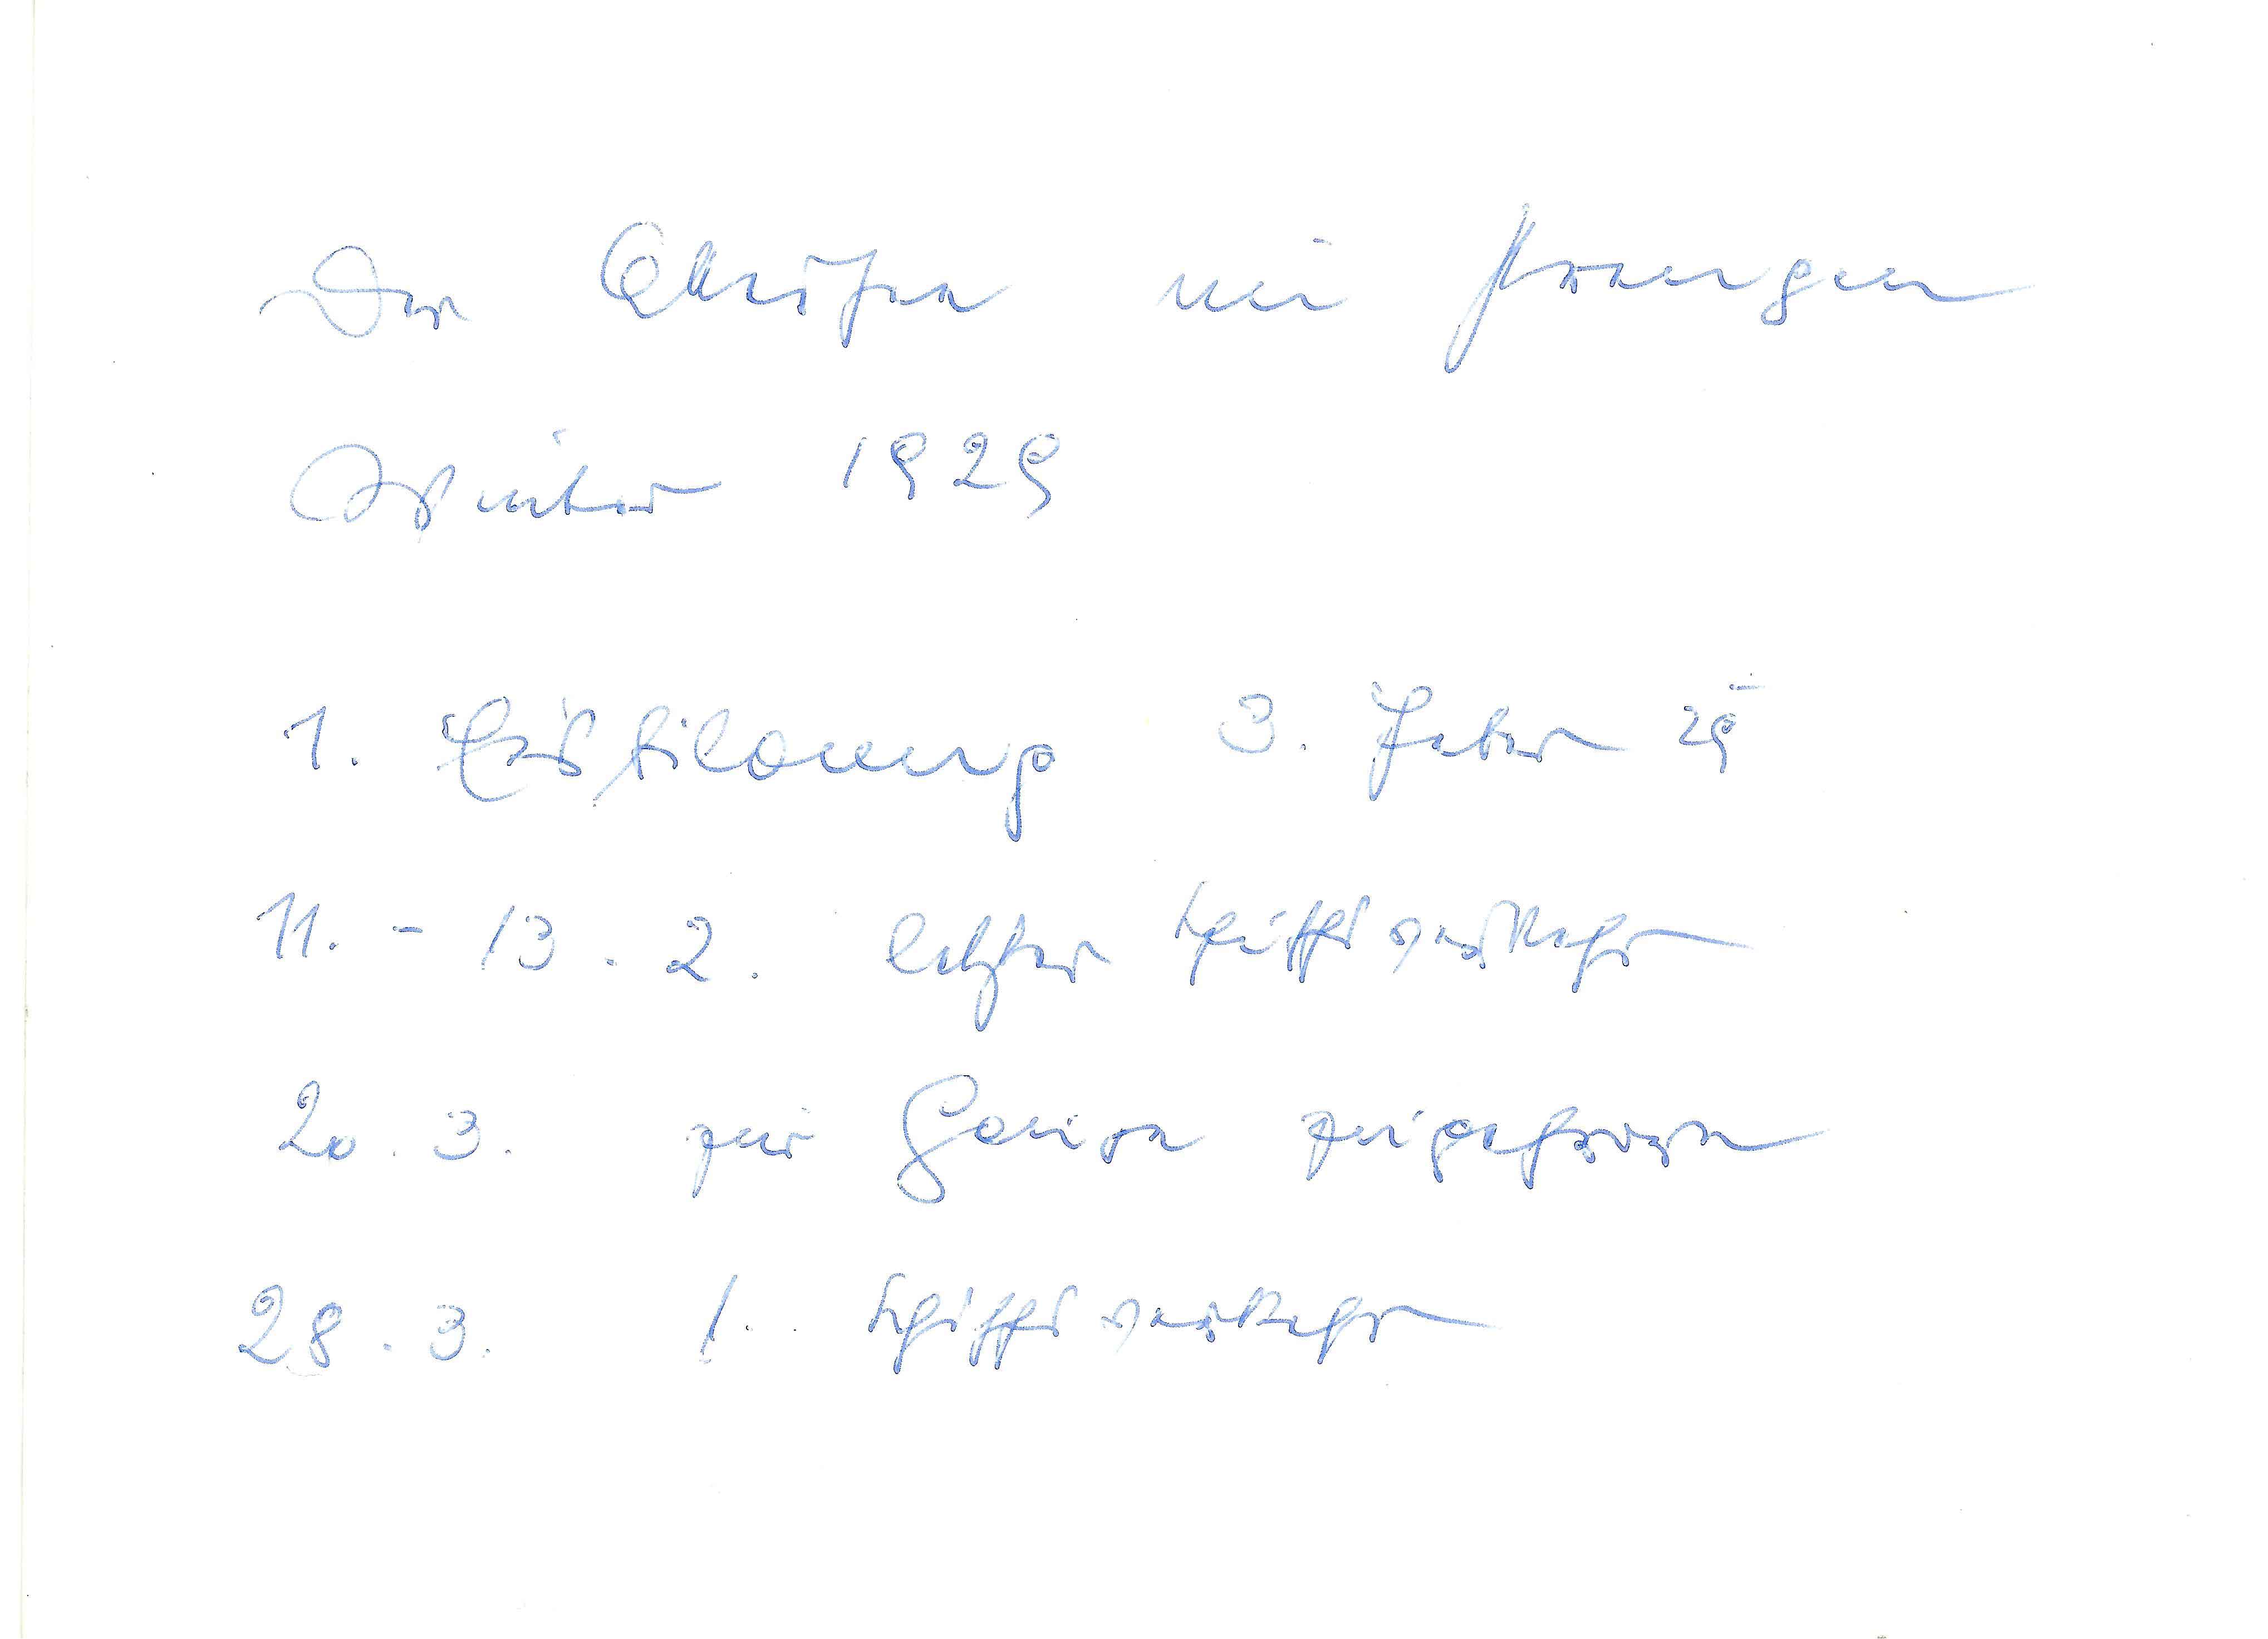 Der im strengen
Winter 1929
1. Eisbildung 3. Feber 29
11. - 13. 2. letzter Schiffsverkehr
20. 3. zugefroren
28. 3. 1. Schiffsverkehr